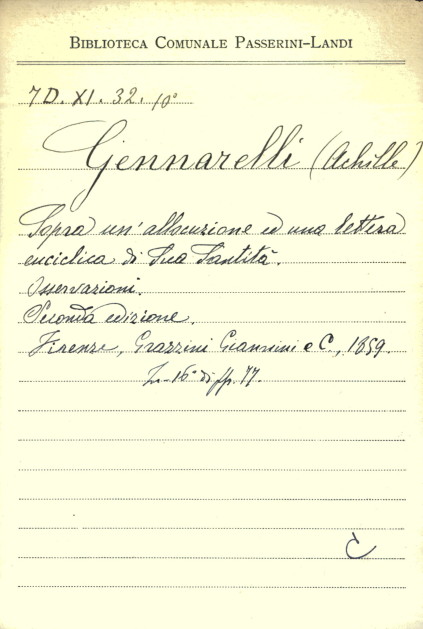 BIBLIOTECA COMUNALE PASSERINI-LANDI
7D. XI. 32. 10°
Gennarelli (Achille)
Sopra un' allocuzione ed una lettera
enciclica di Sua Santità.
Osservazioni.
Seconda edizione.
Firenze, Grazzini Giannini e C., 1859.
In-16° di pp. 77.
C